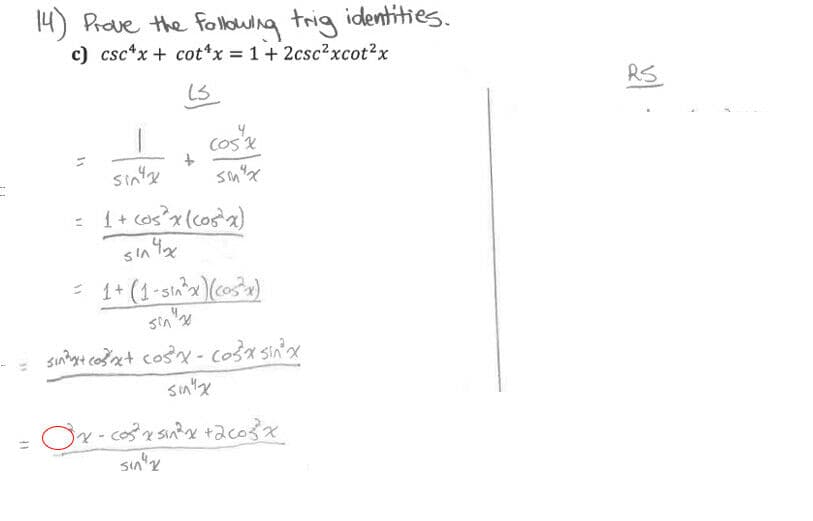 14) Prove the following trig identities.
c) csc⁴x + cot⁴x = 1 + 2csc²xcot²x
LS
RS
= 1/sin⁴x + cos⁴x/sin⁴x
= (1 + cos²x(cos²x))/sin⁴x
= (1 + (1-sin²x)(cos²x))/sin⁴x
= (sin²x + cos²x + cos²x - cos²x sin²x)/sin⁴x
= ²x - cos²x sin²x + 2cos²x/sin⁴x